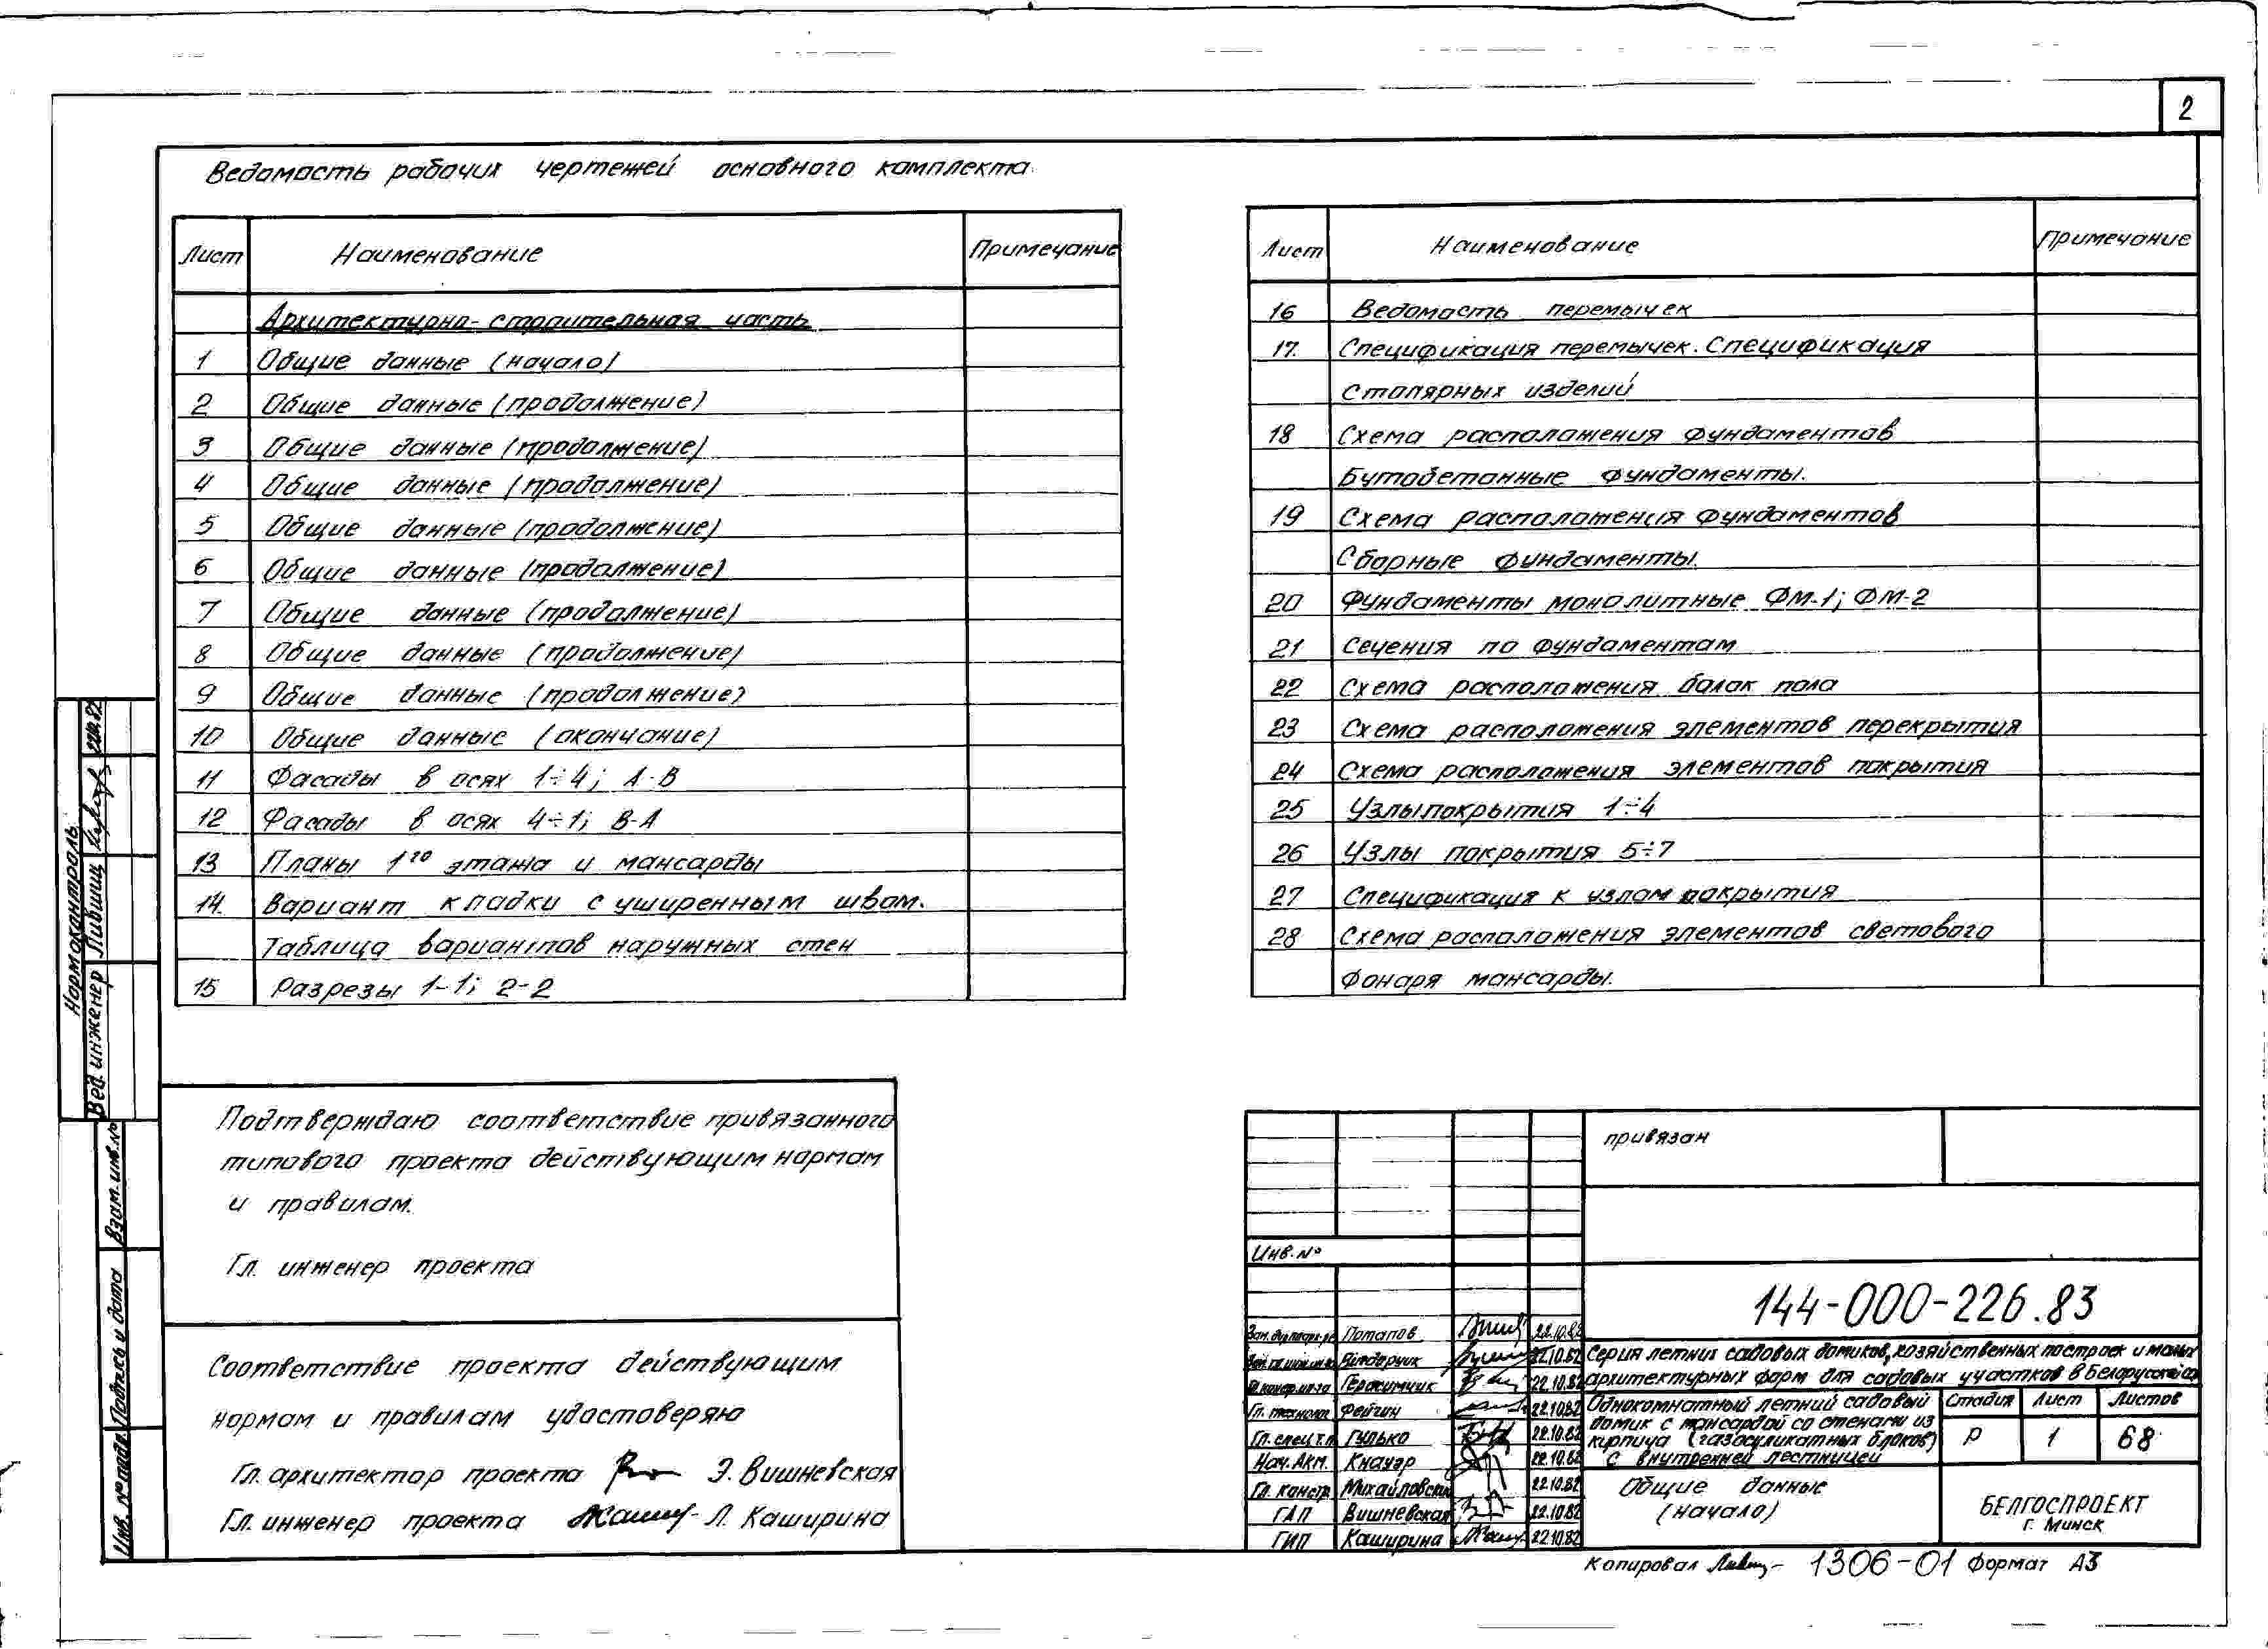 2
Ведомость рабочих чертежей основного комплекта.
Лист Наименование Примечание
Архитектурно-строительная часть
1 Общие данные (начало)
2 Общие данные (продолжение)
3 Общие данные (продолжение)
4 Общие данные (продолжение)
5 Общие данные (продолжение)
6 Общие данные (продолжение)
7 Общие данные (продолжение)
8 Общие данные (продолжение)
9 Общие данные (продолжение)
10 Общие данные (окончание)
11 Фасады в осях 1÷4; А-В
12 Фасады в осях 4÷1; В-А
13 Планы 1го этажа и мансарды
14. Вариант кладки с уширенным швом.
Таблица вариантов наружных стен
15 Разрезы 1-1; 2-2
Лист Наименование Примечание
16 Ведомость перемычек
17. Спецификация перемычек. Спецификация
столярных изделий
18 Схема расположения фундаментов
Бутобетонные фундаменты.
19 Схема расположения фундаментов
Сборные фундаменты.
20 Фундаменты монолитные ФМ-1; ФМ-2
21 Сечения по фундаментам
22 Схема расположения балок пола
23 Схема расположения элементов перекрытия
24 Схема расположения элементов покрытия
25 Узлы покрытия 1÷4
26 Узлы покрытия 5÷7
27 Спецификация к узлам покрытия
28 Схема расположения элементов светового
фонаря мансарды.
Подтверждаю соответствие привязанного
типового проекта действующим нормам
и правилам.
Гл. инженер проекта
Соответствие проекта действующим
нормам и правилам удостоверяю
Гл. архитектор проекта Э. Вишневская
Гл. инженер проекта Л. Каширина
Нормоконтроль
Вед. инженер Лившиц
Взам. инв. №
Подпись и дата
Инв. № подл.
привязан
Инв. №
144-000-226.83
Потапов 22.10.82
22.10.82
Герасимчик 22.10.82
Гл. технолог Фейгин 22.10.82
Гл. спец. т.п. Гулько 22.10.82
Нач. АКМ. Кнауэр 22.10.82
Гл. констр. Михайловский 22.10.82
ГАП Вишневская 22.10.82
ГИП Каширина 22.10.82
Серия летних садовых домиков, хозяйственных построек и малых
архитектурных форм для садовых участков в Белорусской
Однокомнатный летний садовый
домик с мансардой со стенами из
кирпича (газосиликатных блоков)
с внутренней лестницей
Стадия Лист Листов
Р 1 68
Общие данные
(начало)
БЕЛГОСПРОЕКТ
г. Минск
Копировал 1306-01 Формат А3